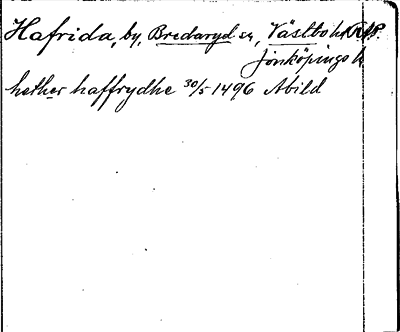 Hafrida, by, Bredaryd sn, Västbo hd
Jönköpings l
hether haffrydhe 30/5 1496 Abild